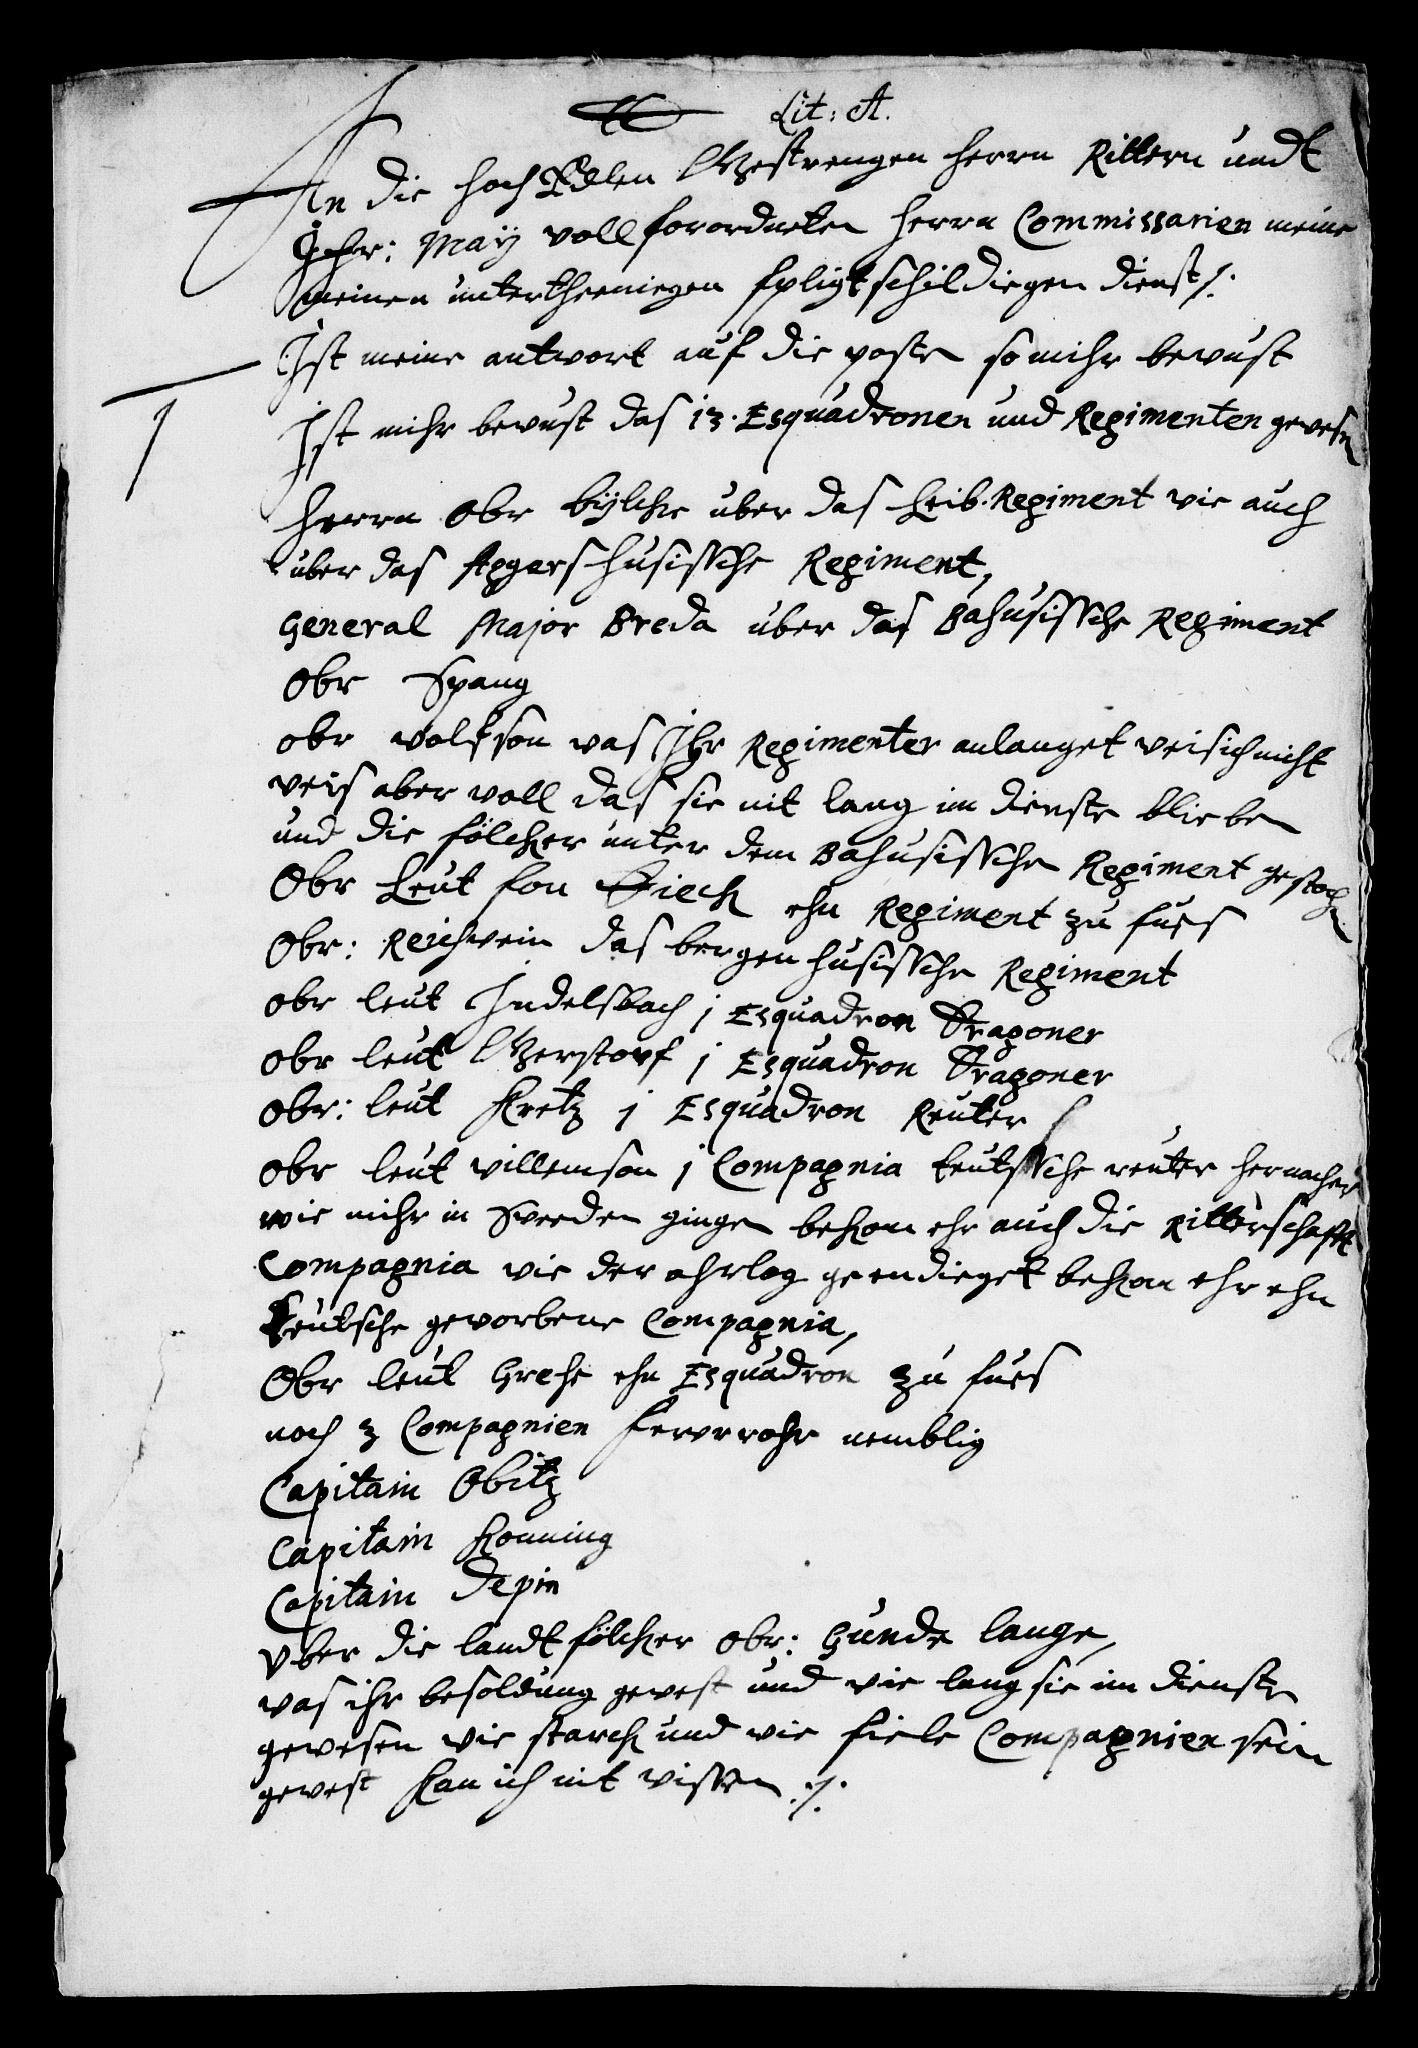 Lit: A.
An die hoch Edlen Gestrengen herrn Rittern undt
May voll forordneten herrn Commissarien meine
meinen untertheeniegen fpligtschildiegen dienst ./.
Ist meine antwort auf die poste so mihr bewust
1
Ist mihr bewust das 13. Esquadronen und Regimenten gewesen
herrn Obr bÿlche uber das Leib. Regiment wie auch
uber das Aggershusissche Regiment,
General Major Breda uber das Bahusissche Regiment
Obr Spang
obr wolfson was Ihr Regimenter anlanget weis ich nicht
weis aber woll das sie nit lang im dienste blieben
und die fölcker unter dem Bahusisschen Regiment gestochen
Obr Leut fon Sieck ehn Regiment zu fues
Obr: Reichwein das bergenhusissche Regiment
obr leut Indelsbach j Esquadron Dragoner
Obr leut Gerstorf j Esquadron Dragoner
Obr: leut Kretz j Esquadron Reuter
Obr leut willemson j Compagnia teutssche reuter hernacher
wie mihr in Sweeden gingen bekom ehr auch die Ritterschafft
Compagnia wie der ohrlog geendieget bekom ehr ehn
teutsche geworbene Compagnia,
Obr leut Grehe ehn Esquadron zu fues
noch 3 Compagnien ferurrohr nemblig
Capitain Obitz
Capitain Konning
Capitain depin
Uber die landt fölcker Obr: Gunde lange,
was ihr besoldung gewest und wie lang sie im dienste
gewesen wie starck und wie fiele Compagnien sein
gewest kan ich nit wissen ./.